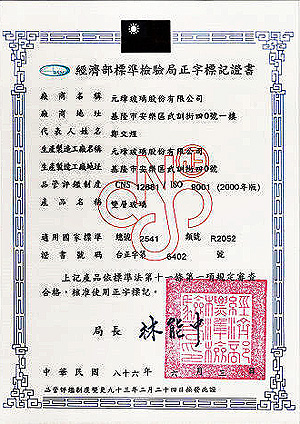 經濟部標準檢驗局正字標記證書
廠商名稱 元璋玻璃股份有限公司
廠商地址 基隆市安樂區武訓街四0號一樓
代表人姓名 鄭文煌
生產製造工廠名稱 元璋玻璃股份有限公司
生產製造工廠地址 基隆市安樂區武訓街四0號
品管評鑑制度 CNS 12681 ISO 9001 (2000年版)
產品名稱 雙層玻璃
適用國家標準 總號 2541 類號 R2052
證書號碼 台正字第 6402 號
上記產品依標準法第十一條第一項規定審查
合格，核准使用正字標記。
局長 林能中
經濟部標準檢驗局
中華民國 八十六年 六月 日
品管評鑑制度變更九十三年二月二十四日換發此證